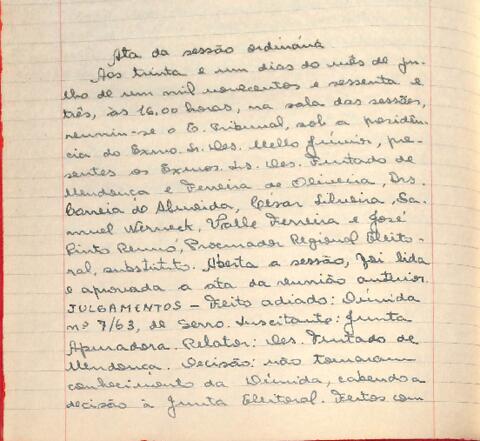 Ata da sessão ordinária
Aos trinta e um dias do mês de ju-
lho de um mil novecentos e sessenta e
três, às 16,00 horas, na sala das sessões,
reuniu-se o E. Tribunal, sob a presidên-
cia do Exmo. Sr. Des. Mello Júnior, pre-
sentes os Exmos. Srs. Des. Furtado de
Mendonça e Ferreira de Oliveira, Drs.
Correia de Almeida, César Silveira, Sa-
muel Werneck, Valle Ferreira e José
Pinto Rennó, Procurador Regional Eleito-
ral, substituto. Aberta a sessão, foi lida
e aprovada a ata da reunião anterior.
JULGAMENTOS – Feito adiado: Dúvida
nº 7/63, de Serro. Suscitante: Junta
Apuradora. Relator: Des. Furtado de
Mendonça. Decisão: não tomaram
conhecimento da Dúvida, cabendo a
decisão à Junta Eleitoral. Feitos com